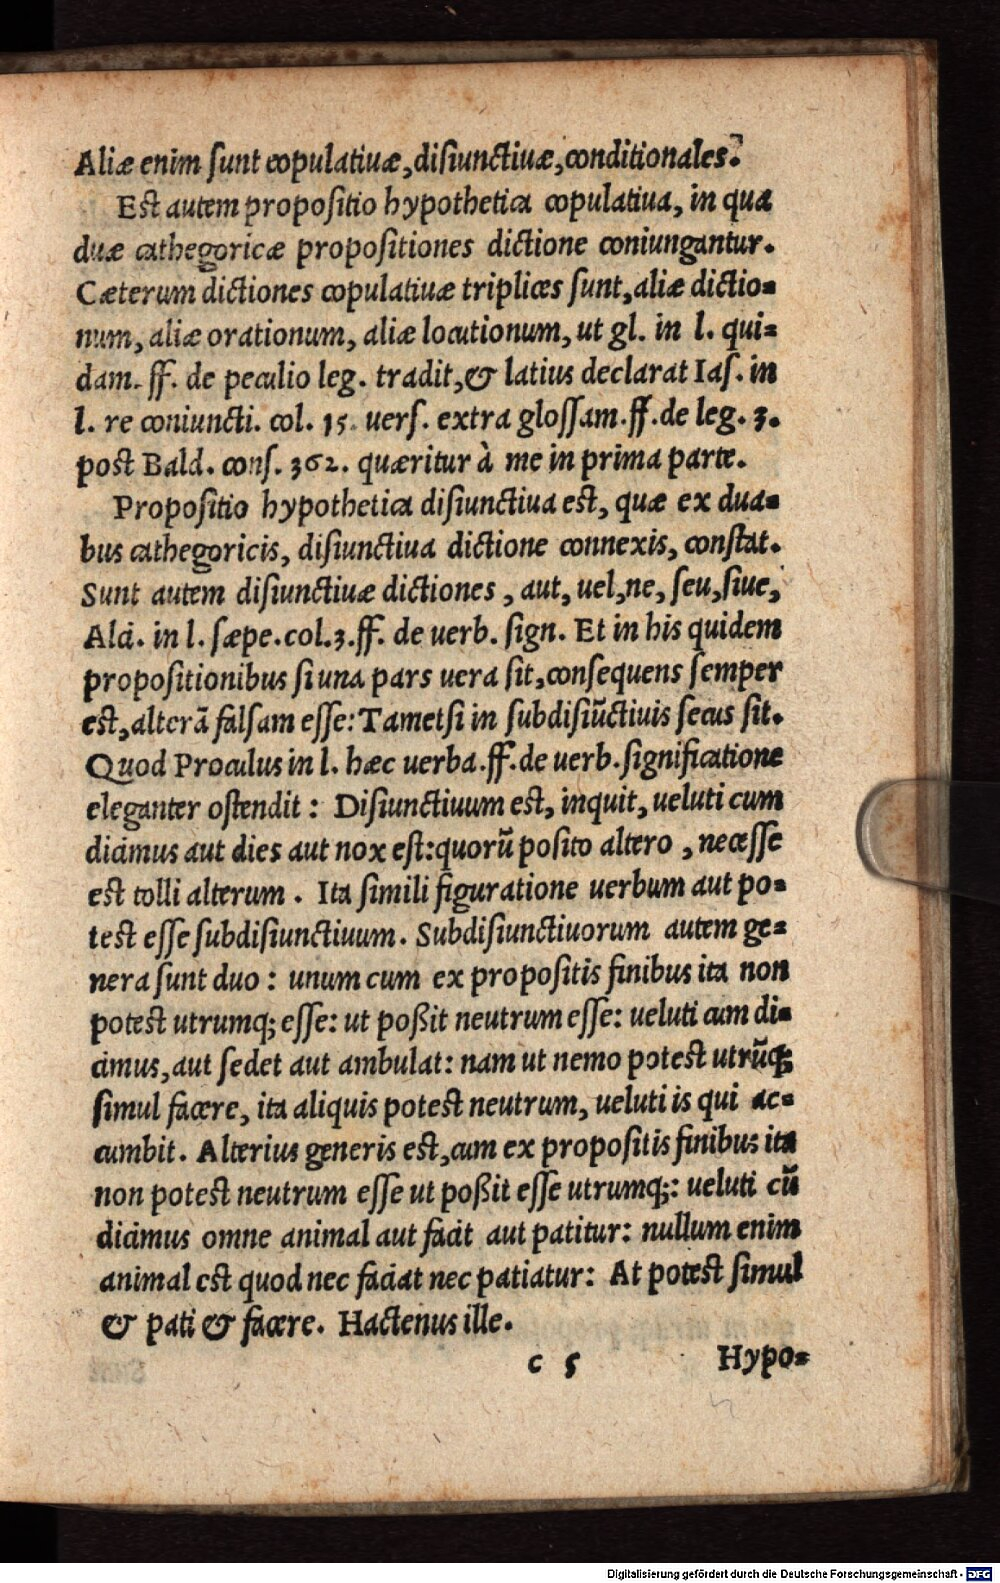 Aliæ enim ſunt copulatiuæ, diſiunctiuæ, conditionales.
Eſt autem propoſitio hypothetica copulatiua, in qua
duæ cathegoricæ propoſitiones dictione coniungantur.
Cæterum dictiones copulatiuæ triplices ſunt, aliæ dictio=
num, aliæ orationum, aliæ locutionum, ut gl. in l. qui=
dam. ff. de peculio leg. tradit, & latius declarat Iaſ. in
l. re coniuncti. col. 15. uerſ. extra gloſſam. ff. de leg. 3.
poſt Bald. conſ. 362. quæritur à me in prima parte.
Propoſitio hypothetica diſiunctiua eſt, quæ ex dua=
bus cathegoricis, diſiunctiua dictione connexis, conſtat.
Sunt autem diſiunctiuæ dictiones, aut, uel, ne, ſeu, ſiue,
Alci. in l. ſæpe. col. 3. ff. de uerb. ſign. Et in his quidem
propoſitionibus ſi una pars uera ſit, conſequens ſemper
eſt, alterā falſam eſſe: Tametſi in ſubdiſiūctiuis ſecus ſit.
Quod Proculus in l. hæc uerba. ff. de uerb. ſignificatione
eleganter oſtendit: Diſiunctiuum eſt, inquit, ueluti cum
dicimus aut dies aut nox eſt: quorū poſito altero, neceſſe
eſt tolli alterum. Ita ſimili figuratione uerbum aut po=
teſt eſſe ſubdiſiunctiuum. Subdiſiunctiuorum autem ge=
nera ſunt duo: unum cum ex propoſitis finibus ita non
poteſt utrumq; eſſe: ut poßit neutrum eſſe: ueluti cum di=
cimus, aut ſedet aut ambulat: nam ut nemo poteſt utrūq;
ſimul facere, ita aliquis poteſt neutrum, ueluti is qui ac=
cumbit. Alterius generis eſt, cum ex propoſitis finibus ita
non poteſt neutrum eſſe ut poßit eſſe utrumq;: ueluti cū
dicimus omne animal aut facit aut patitur: nullum enim
animal eſt quod nec faciat nec patiatur: At poteſt ſimul
& pati & facere. Hactenus ille.
c 5 Hypo=
Digitalisierung gefördert durch die Deutsche Forschungsgemeinschaft - DFG